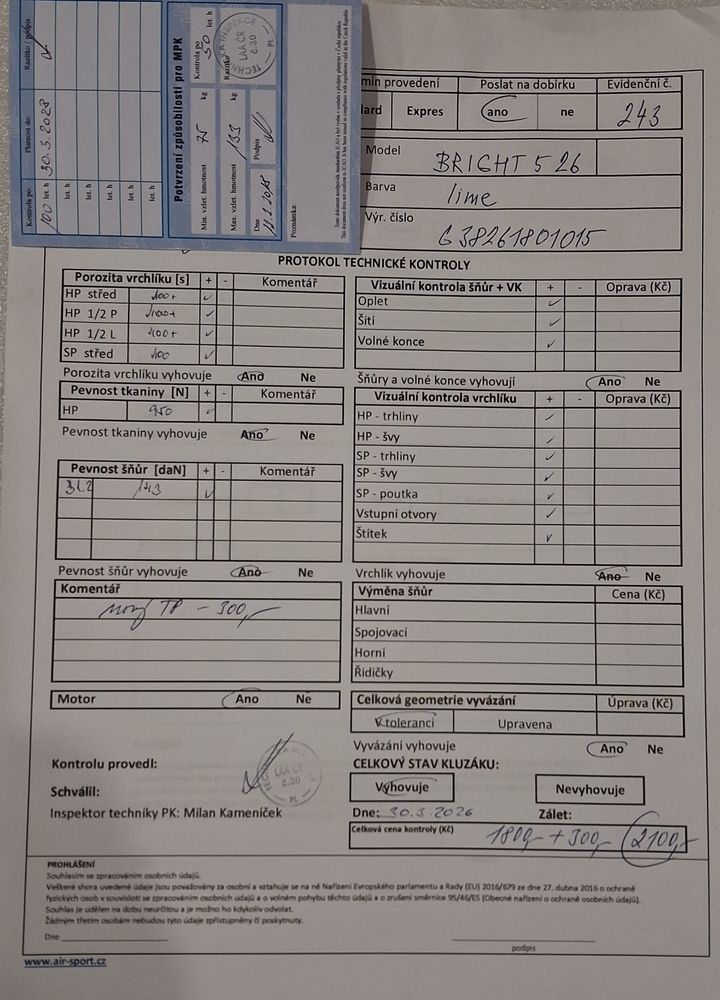 Kontrola po: Platnost do: Razítko / podpis
100 let. h 30.3.2028
let. h
let. h
let. h
let. h
let. h
Potvrzení způsobilosti pro MPK
Min. vzlet. hmotnost 75 kg Kontrola po 50 let. h
Max. vzlet. hmotnost 133 kg Razítko
TECHNIKA INSPEKCE LAA ČR č.30 PI
Dne Podpis
Poznámka:
mín provedení Poslat na dobírku Evidenční č.
lard Expres ano ne 243
Model BRIGHT 5 26
Barva lime
Výr. číslo G38261801015
PROTOKOL TECHNICKÉ KONTROLY
Porozita vrchlíku [s] + - Komentář
HP střed 400+ ✓
HP 1/2 P 400+ ✓
HP 1/2 L 400+ ✓
SP střed 400 ✓
Porozita vrchlíku vyhovuje Ano Ne
Pevnost tkaniny [N] + - Komentář
HP 950 ✓
Pevnost tkaniny vyhovuje Ano Ne
Pevnost šňůr [daN] + - Komentář
3L2 143 ✓
Pevnost šňůr vyhovuje Ano Ne
Komentář
nový TP - 300,-
Motor Ano Ne
Vizuální kontrola šňůr + VK + - Oprava (Kč)
Oplet ✓
Šití ✓
Volné konce ✓
Šňůry a volné konce vyhovují Ano Ne
Vizuální kontrola vrchlíku + - Oprava (Kč)
HP - trhliny ✓
HP - švy ✓
SP - trhliny ✓
SP - švy ✓
SP - poutka ✓
Vstupní otvory ✓
Štítek ✓
Vrchlík vyhovuje Ano Ne
Výměna šňůr Cena (Kč)
Hlavní
Spojovací
Horní
Řidičky
Celková geometrie vyvázání Úprava (Kč)
V toleranci Upravena
Vyvázání vyhovuje Ano Ne
Kontrolu provedl:
Schválil:
Inspektor techniky PK: Milan Kameníček
LAA ČR č.30 PI
CELKOVÝ STAV KLUZÁKU:
Vyhovuje Nevyhovuje
Dne: 30.3.2026 Zálet:
Celková cena kontroly (Kč) 1800,- + 300,- 2100,-
PROHLÁŠENÍ
Souhlasím se zpracováním osobních údajů.
Veškeré shora uvedené údaje jsou považovány za osobní a vztahuje se na ně Nařízení Evropského parlamentu a Rady (EU) 2016/679 ze dne 27. dubna 2016 o ochraně
fyzických osob v souvislosti se zpracováním osobních údajů a o volném pohybu těchto údajů a o zrušení směrnice 95/46/ES (Obecné nařízení o ochraně osobních údajů).
Souhlas je udělen na dobu neurčitou a je možno ho kdykoliv odvolat.
Žádným třetím osobám nebudou tyto údaje zpřístupněny či poskytnuty.
Dne
podpis
www.air-sport.cz